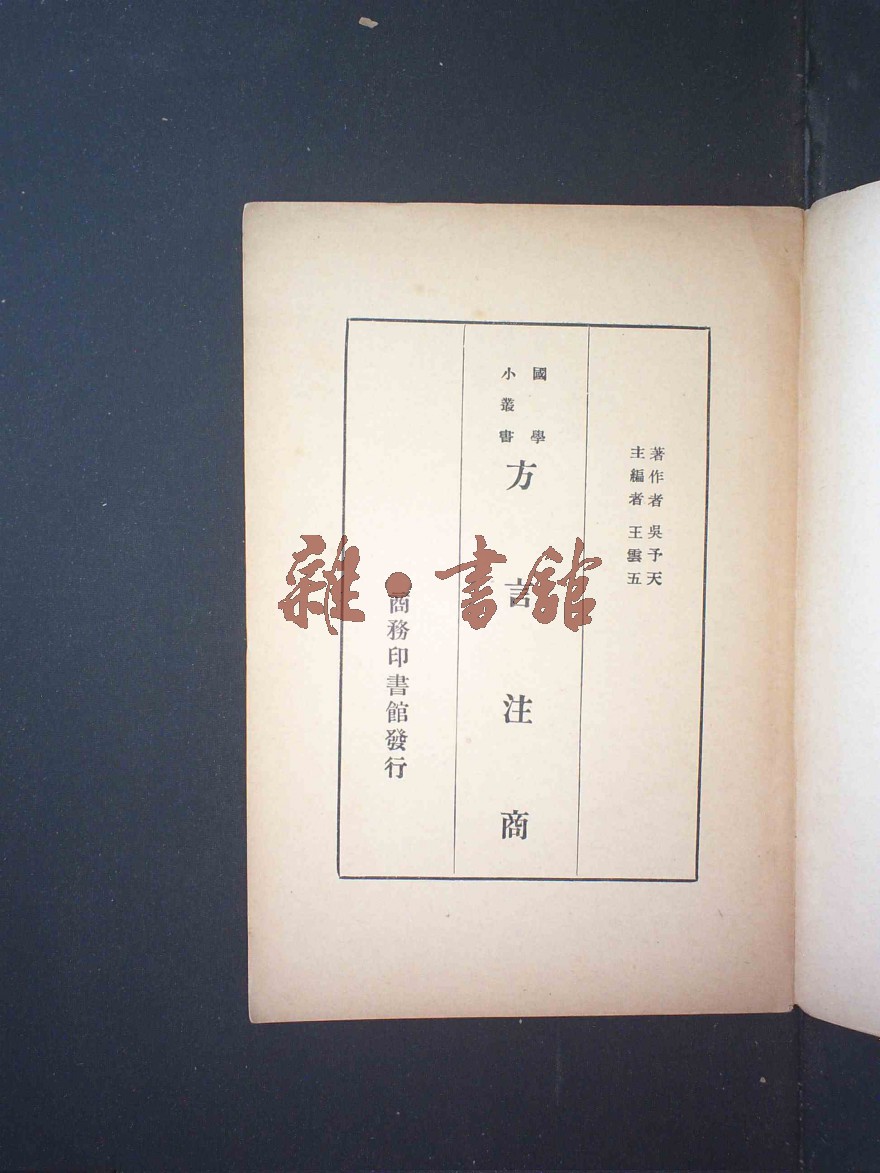 著作者 吳予天
主編者 王雲五
國學
小叢書
方言注商
商務印書館發行
雜·書館